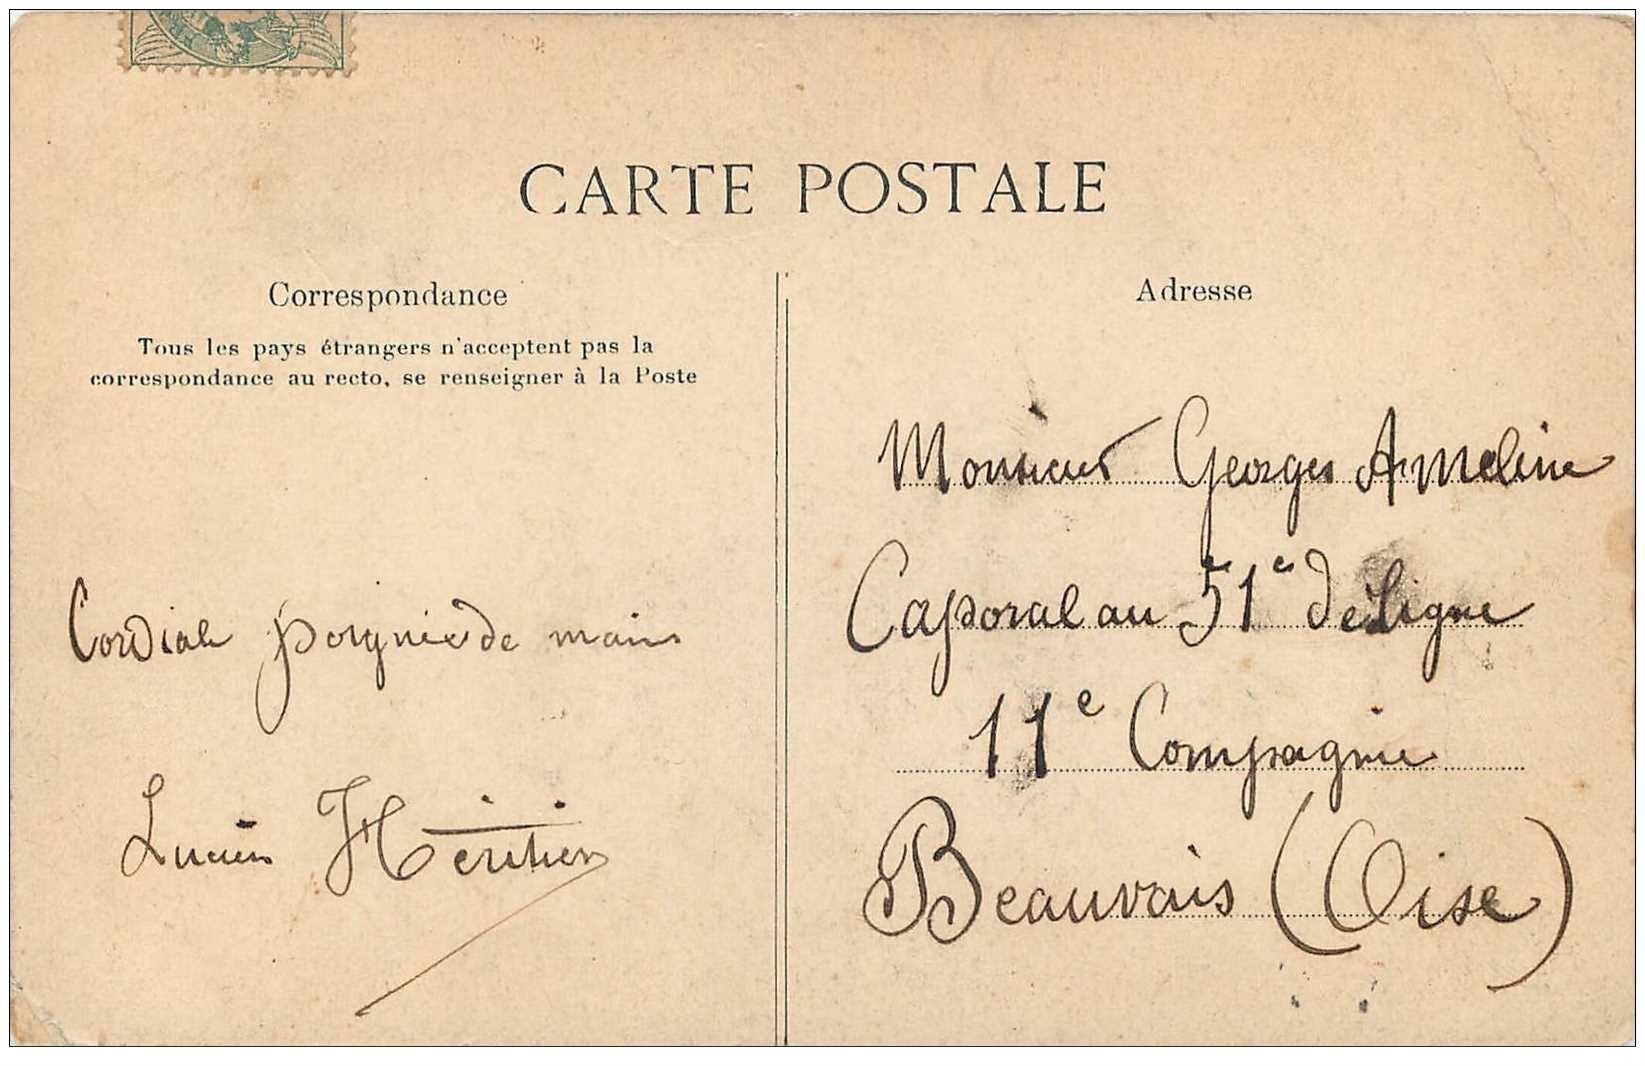 CARTE POSTALE
Correspondance
Tous les pays étrangers n'acceptent pas la
correspondance au recto, se renseigner à la Poste
Cordiale poignée de main
Lucien Héritier
Adresse
Monsieur Georges Ameline
Caporal au 51e de Ligne
11e Compagnie
Beauvais (Oise)